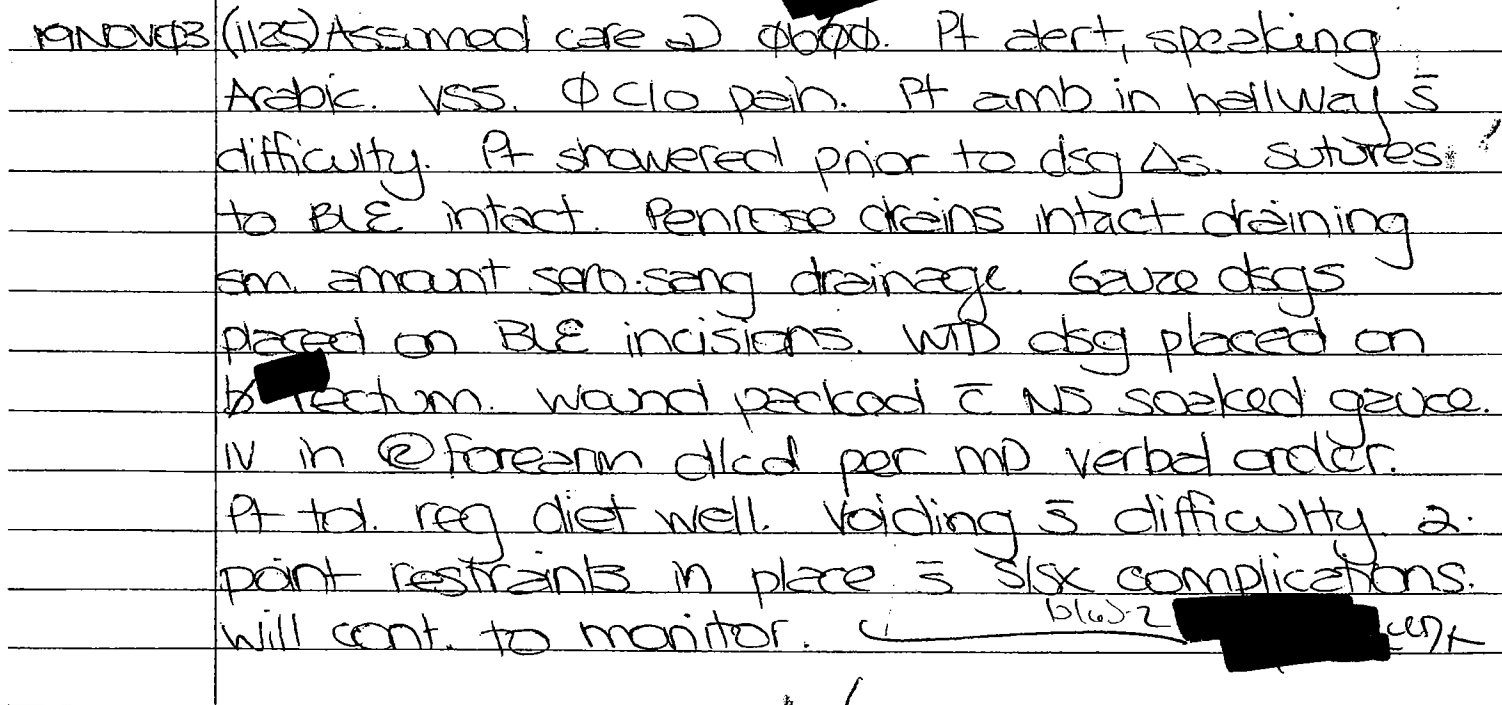 19NOV03 (1125) Assumed care @ 0600. Pt alert, speaking
Arabic. VSS. Ø c/o pain. Pt amb in hallway s̄
difficulty. Pt showered prior to dsg Δs. Sutures
to BLE intact. Penrose drains intact draining
sm. amount sero.sang drainage. Gauze dsgs
placed on BLE incisions. WTD dsg placed on
rectum. Wound packed c̄ NS soaked gauze.
IV in forearm d/cd per MD verbal order.
Pt tol. reg diet well. Voiding s̄ difficulty. 2
point restraints in place s̄ s/sx complications.
Will cont. to monitor. b(6)-2